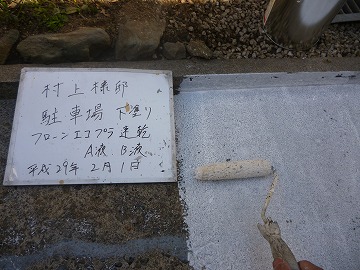 村上様邸
駐車場 下塗り
フローンエコプラ速乾
A液、B液
平成29年2月1日